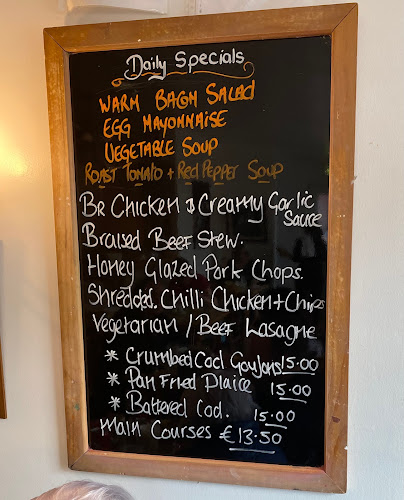 Daily Specials
WARM BACON SALAD
EGG MAYONNAISE
VEGETABLE SOUP
ROAST TOMATO + RED PEPPER SOUP
BR CHICKEN & CREAMY Garlic
Sauce
Braised Beef Stew.
Honey Glazed Pork Chops.
Shredded. Chilli Chicken + Chips
Vegetarian / Beef Lasagne
* Crumbed Cod Goujons 15.00
* Pan Fried Plaice 15.00
* Battered Cod. 15.00
Main Courses €13.50